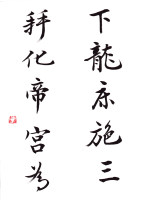 下龍床施三
拜化帝宮為